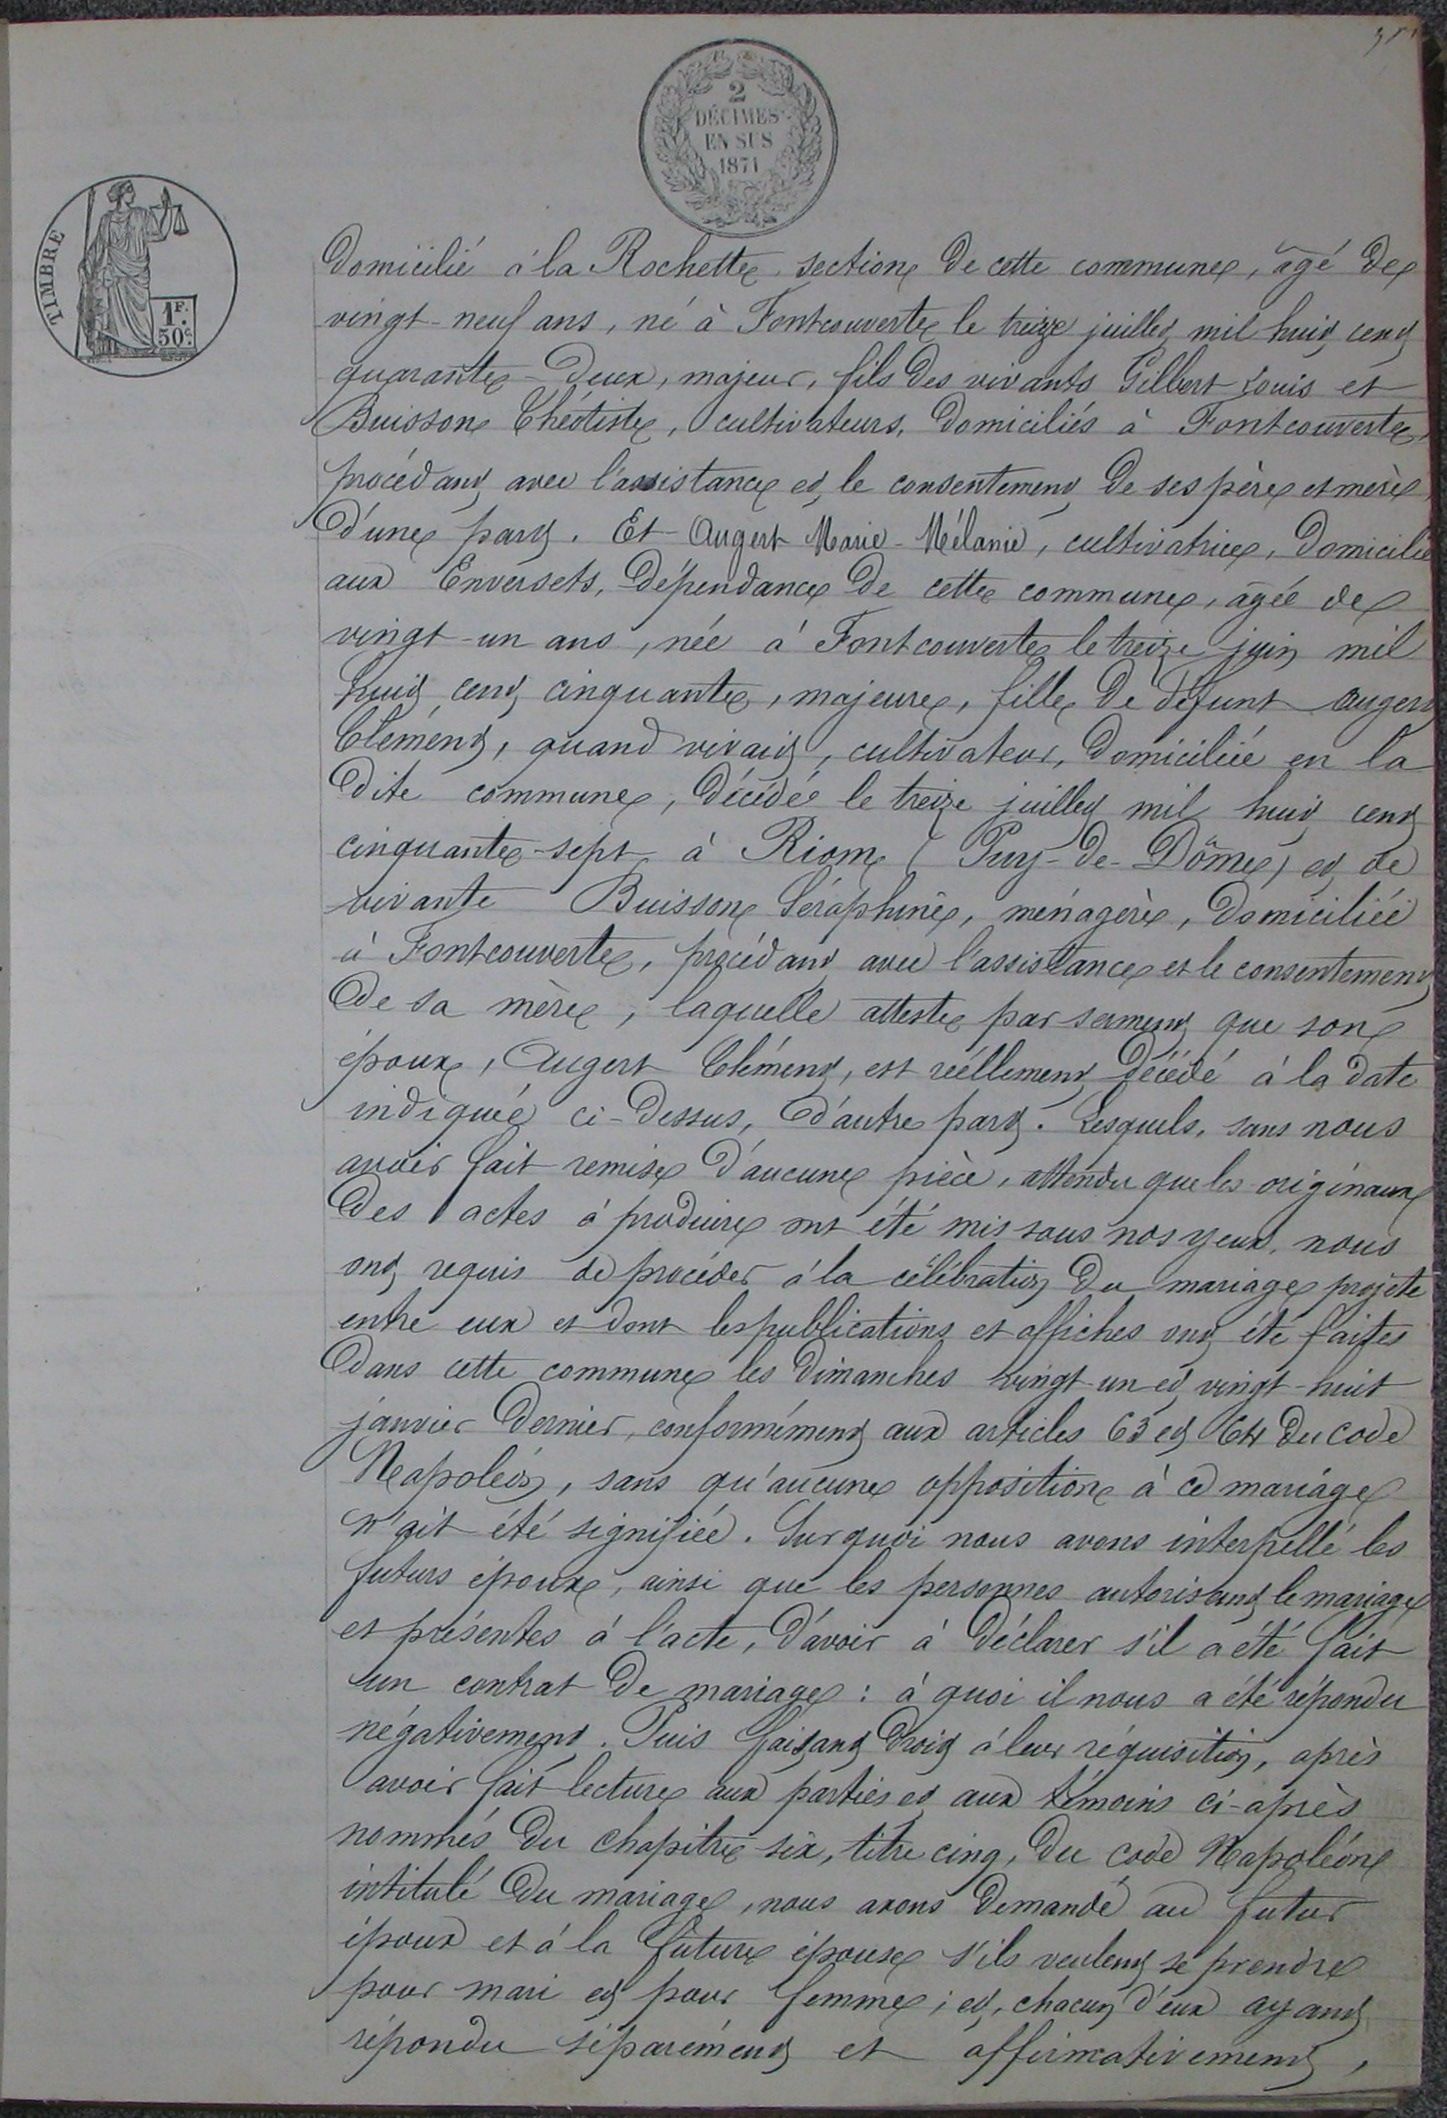 2
DÉCIMES
EN SUS
1871
TIMBRE
1F.
50c
domicilié à la Rochette, section de cette commune, âgé de
vingt-neuf ans, né à Fontcouverte le treize juillet mil huit cent
quarante-deux, majeur, fils des vivants Gilbert Louis et
Buisson Théotiste, cultivateurs, domiciliés à Fontcouverte,
procédant avec l'assistance et le consentement de ses père et mère,
d'une part. Et Augert Marie-Mélanie, cultivatrice, domicilié
aux Enversets, dépendance de cette commune, âgée de
vingt-un ans, née à Fontcouverte le treize juin mil
huit cent cinquante, majeure, fille de défunt Augert
Clément, quand vivait, cultivateur, domiciliée en la
dite commune, décédée le treize juillet mil huit cent
cinquante-sept à Riom (Puy-de-Dôme) et de
vivante Buisson Séraphine, ménagère, domiciliée
à Fontcouverte, procédant avec l'assistance et le consentement
de sa mère, laquelle atteste par serment que son
époux, Augert Clément, est réellement décédé à la date
indiquée ci-dessus, d'autre part. Lesquels, sans nous
avoir fait remise d'aucune pièce, attendu que les originaux
des actes à produire ont été mis sous nos yeux, nous
ont requis de procéder à la célébration du mariage projeté
entre eux et dont les publications et affiches ont été faites
dans cette commune les dimanches vingt-un et vingt-huit
janvier dernier, conformément aux articles 63 et 64 du code
Napoléon, sans qu'aucune opposition à ce mariage
n'ait été signifiée. Sur quoi nous avons interpellé les
futurs époux, ainsi que les personnes autorisant le mariage
et présentes à l'acte, d'avoir à déclarer s'il a été fait
un contrat de mariage : à quoi il nous a été répondu
négativement. Puis faisant droit à leur réquisition, après
avoir fait lecture aux parties et aux témoins ci-après
nommés du chapitre six, titre cinq, du code Napoléon
intitulé du mariage, nous avons demandé au futur
époux et à la future épouse s'ils veulent se prendre
pour mari et pour femme ; et, chacun d'eux ayant
répondu séparément et affirmativement,